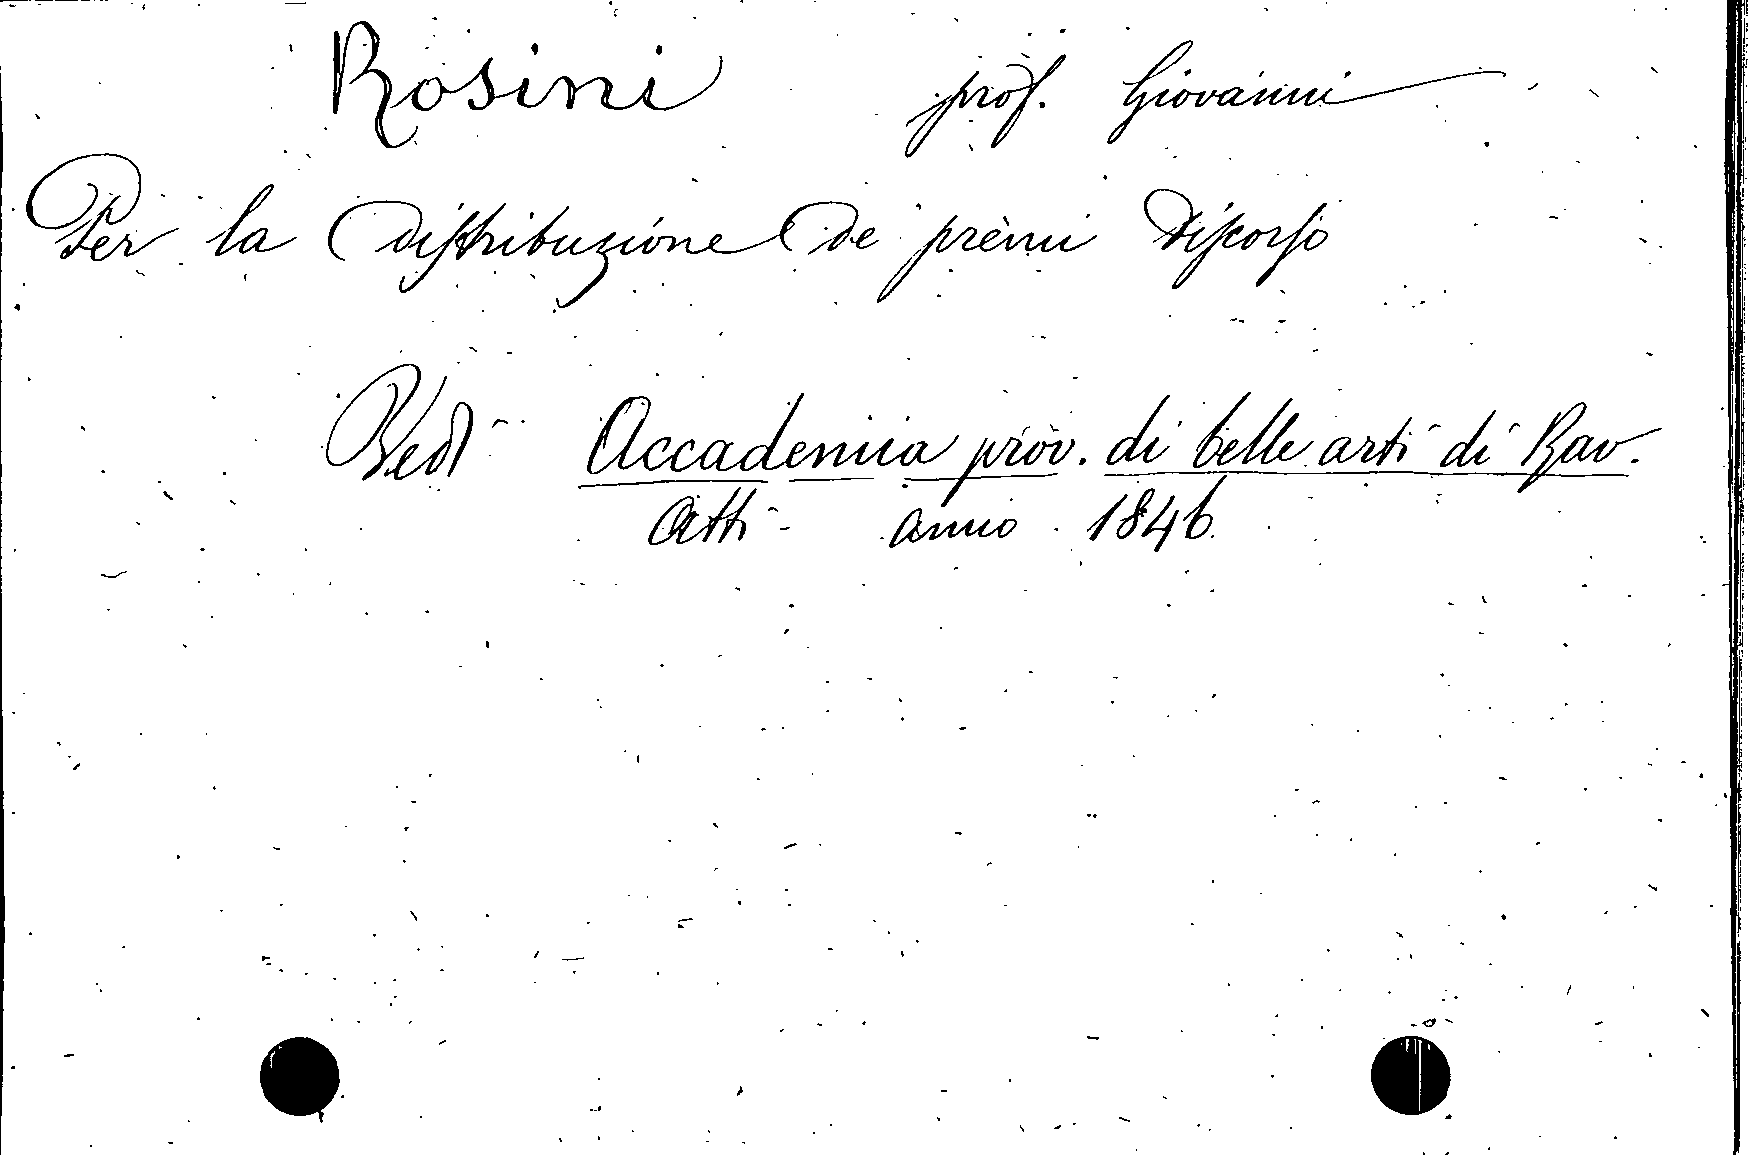 Rosini prof. Giovanni
Per la distribuzione de' premi Discorso
Vedi Accademia prov. di belle arti di Rav.
Atti - anno 1846.